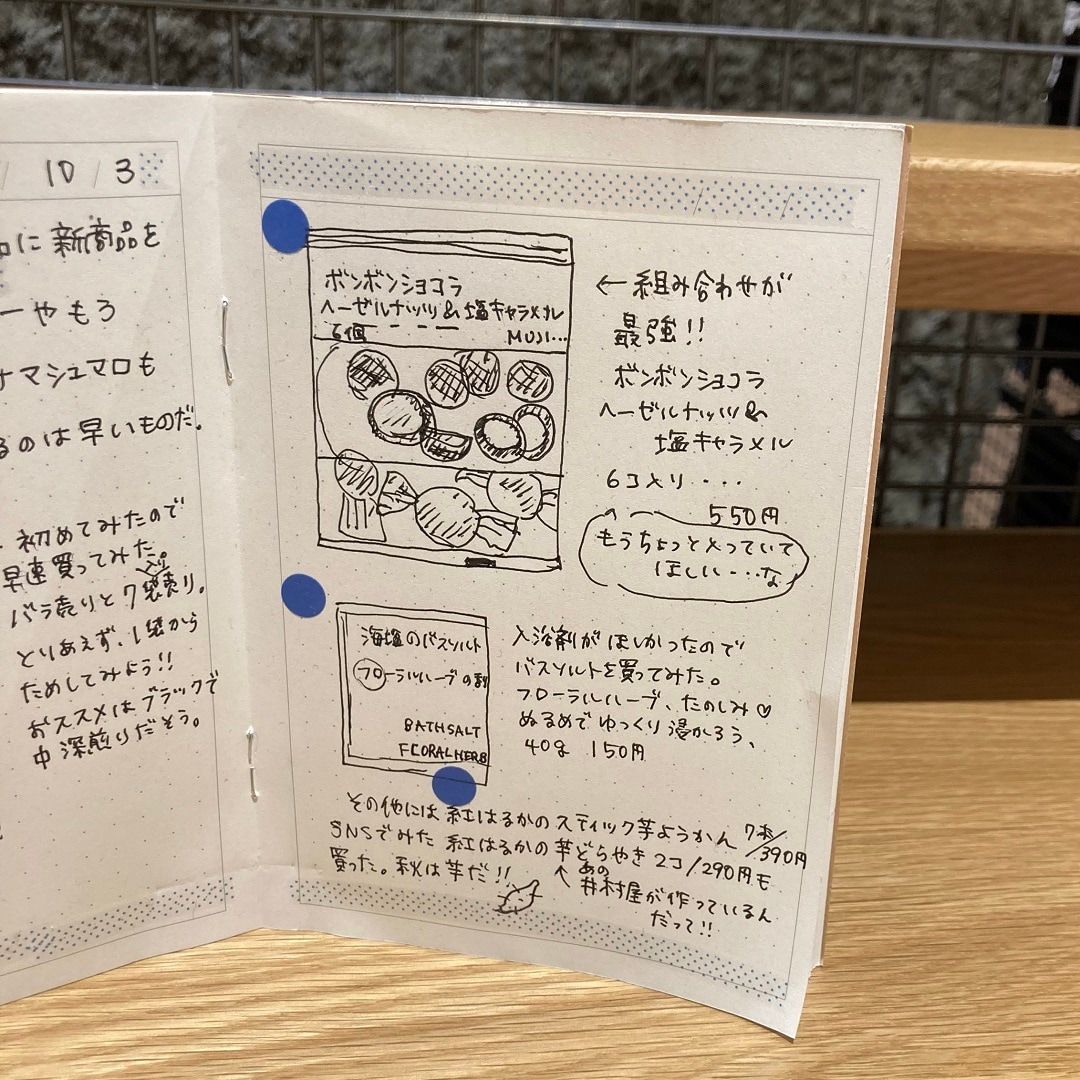 10/3
に新商品を
ーやもろ
マシュマロも
るのは早いものだ。
初めてみたので
早速買ってみた。
バラ売りと7袋入り売り。
とりあえず、1袋から
ためしてみよう!!
おススメはブラックで
中深煎りだそう。
ボンボンショコラ
ヘーゼルナッツ&塩キャラメル
6個
MUJI...
←組み合わせが
最強!!
ボンボンショコラ
ヘーゼルナッツ&
塩キャラメル
6コ入り・・・・
550円
もうちょっと入っていて
ほしい…な
海塩のバスソルト
フローラルハーブの
BATHSALT
FLORALHERB
入浴剤がほしかったので
バスソルトを買ってみた。
フローラルハーブ、たのしみ♡
ぬるめでゆっくり浸かろう、
40g 150円
その他には紅はるかのスティック芋ようかん 7本/390円
SNSでみた 紅はるかの芋どらやき 2コ/290円も
買った。秋は芋だ!!
↑あの
井村屋が作っているん
だって!!